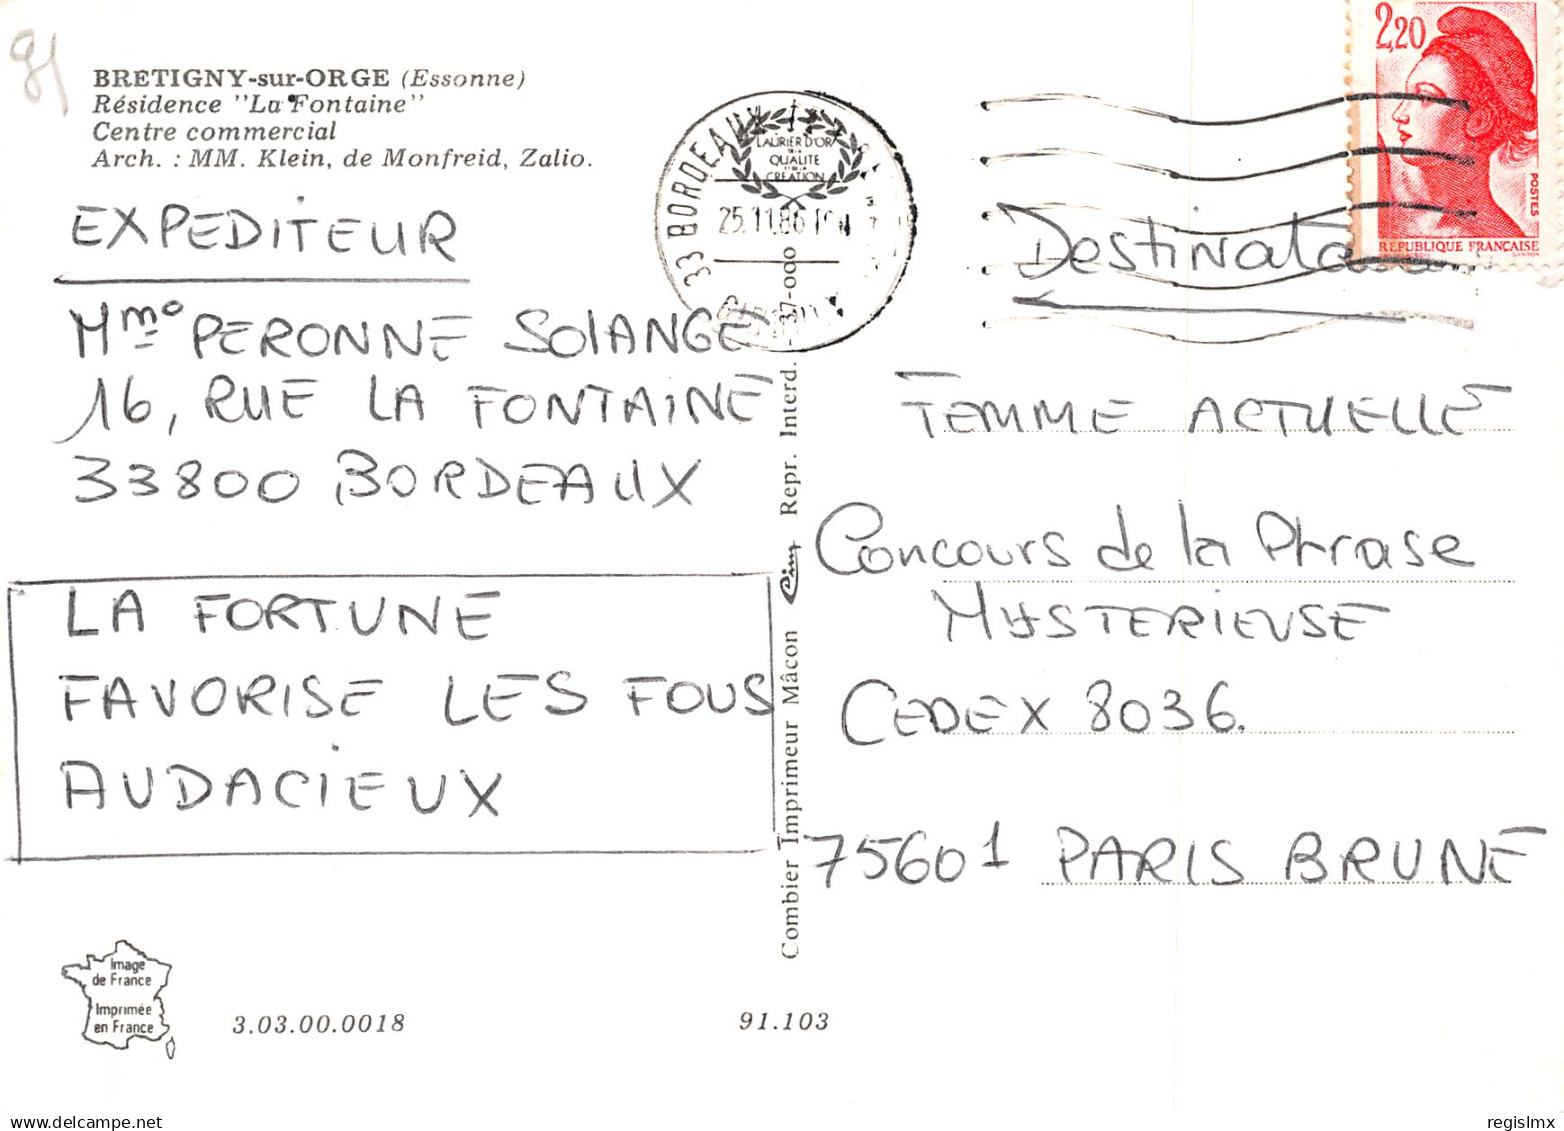 91
BRETIGNY-sur-ORGE (Essonne)
Résidence "La Fontaine"
Centre commercial
Arch. : MM. Klein, de Monfreid, Zalio.
EXPEDITEUR
Mme PERONNE SOLANGE
16, RUE LA FONTAINE
33800 BORDEAUX
LA FORTUNE
FAVORISE LES FOUS
AUDACIEUX
Image
de France
Imprimée
en France
3.03.00.0018
91.103
Combier Imprimeur Mâcon Cim Repr. Interd. - 37-000
33 BORDEAUX
LAURIER D'OR
QUALITE
CREATION
25.11.86
2,20
POSTES
REPUBLIQUE FRANÇAISE
GANDON
Destinata
FEMME ACTUELLE
Concours de la Phrase
MYSTERIEUSE
CEDEX 8036.
75601 PARIS BRUNE
regislmx